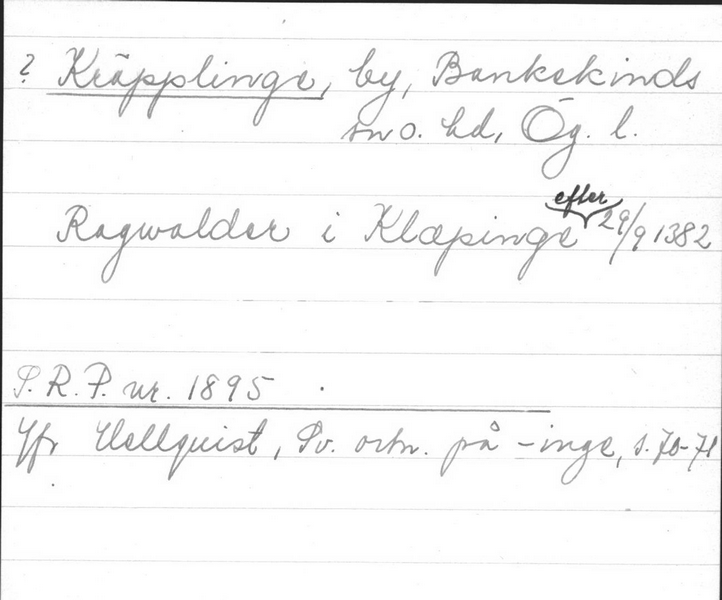 ? Kräpplinge, by, Bankekinds
sn o. hd, Ög. l.
Ragwalder i Klæpinge efter 29/9 1382
P.R.P. nr. 1895
Jfr Hellquist, Sv. ortn. på -inge, s. 70-71